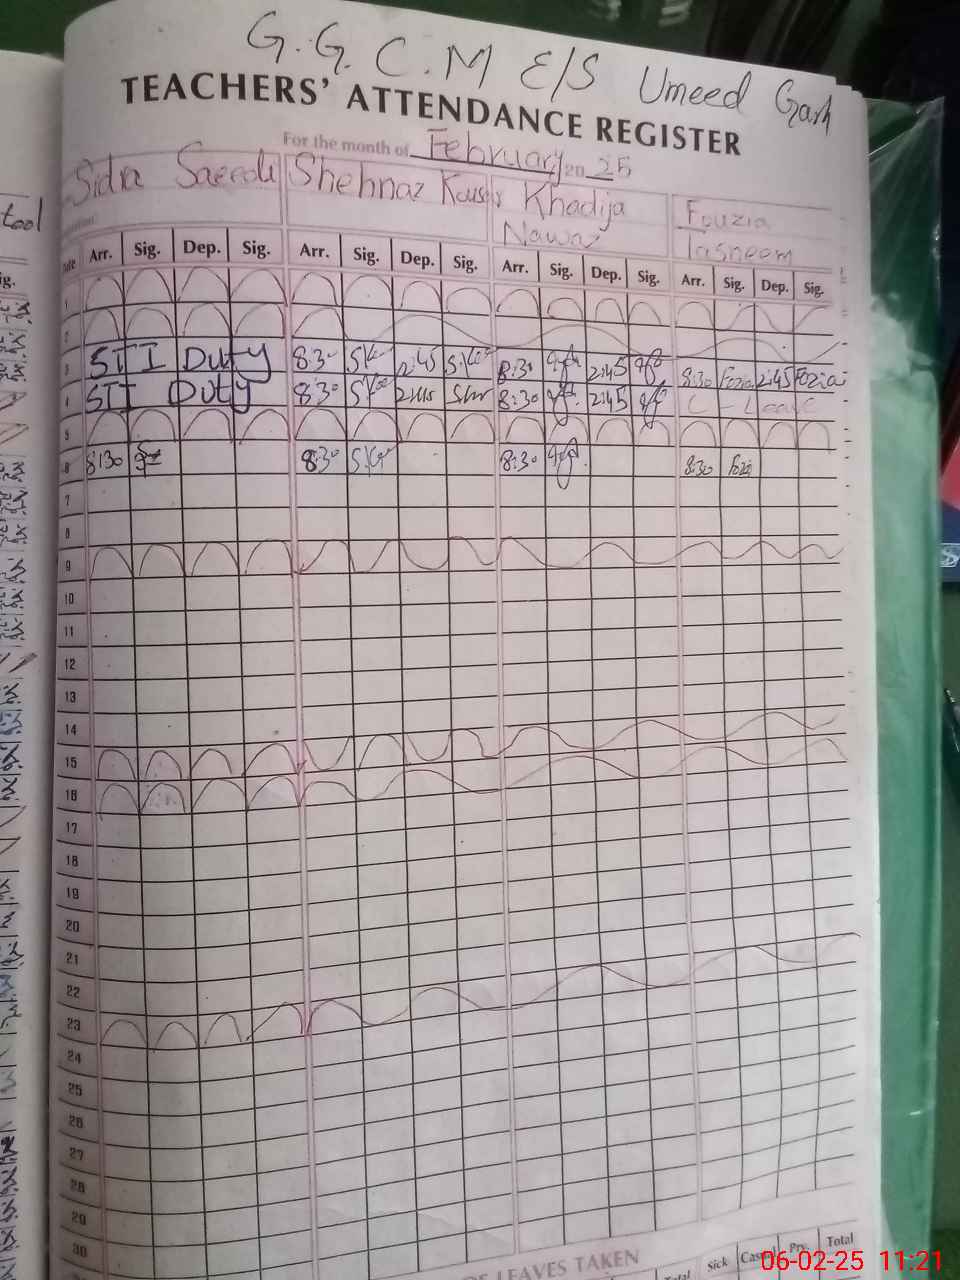 G.G.C.M E/S Umeed Garh
TEACHERS' ATTENDANCE REGISTER
For the month of February 20 25
Sidra Saeedi Shehnaz Kausar Khadija Nawaz Fouzia Tasneem
Date Arr. Sig. Dep. Sig. Arr. Sig. Dep. Sig. Arr. Sig. Dep. Sig. Arr. Sig. Dep. Sig.
1
2
3 STI Duty 8:30 2:45 8:30 2:45 8:30 Fozia 2:45 Fozia
4 STI Duty 8:30 2:45 8:30 2:45 C - Leave
5
6 8:30 8:30 8:30 8:30 Fozia
7
8
9
10
11
12
13
14
15
16
17
18
19
20
21
22
23
24
25
26
27
28
29
30
OF LEAVES TAKEN
Total Sick Casual Prv. Total
06-02-25 11:21
tool